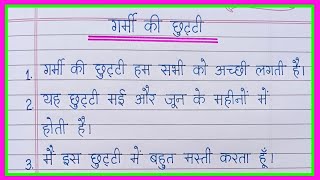 गर्मी की छुट्टी
1. गर्मी की छुट्टी हम सभी को अच्छी लगती है।
2 यह छुट्टी मई और जून के महीनों में
होती है।
3. मैं इस छुट्टी में बहुत मस्ती करता हूँ।